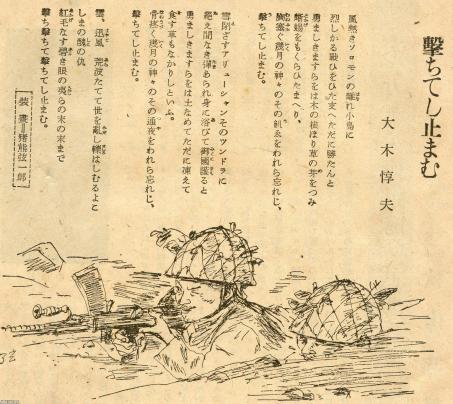 擊ちてし止まむ
大木惇夫
風熱きソロモンの離れ小島に
烈しかる戰ひをひた支へただに勝たんと
勇ましきますらをは木の根ほり草の芽をつみ
蜥蜴をもくらひたまへり、
幾月の神々のその飢ゑをわれら忘れじ、
擊ちてし止まむ。
雪閉ざすアリューシャンそのツンドラに
絶え間なき彈あられ身に浴びて御國護ると
勇ましきますらをは土なめてただに凍えて
食す草もなかりしといふ。
骨疼く幾月の神々のその通夜をわれら忘れじ、
擊ちてし止まむ。
雲、迅風、荒波たてて世を亂し はしむるよこ
しまの醜の仇
紅毛なす碧き眼の夷らの末の末まで
擊ち擊ち擊ちてし止まむ。
裝畫=猪熊弦一郎